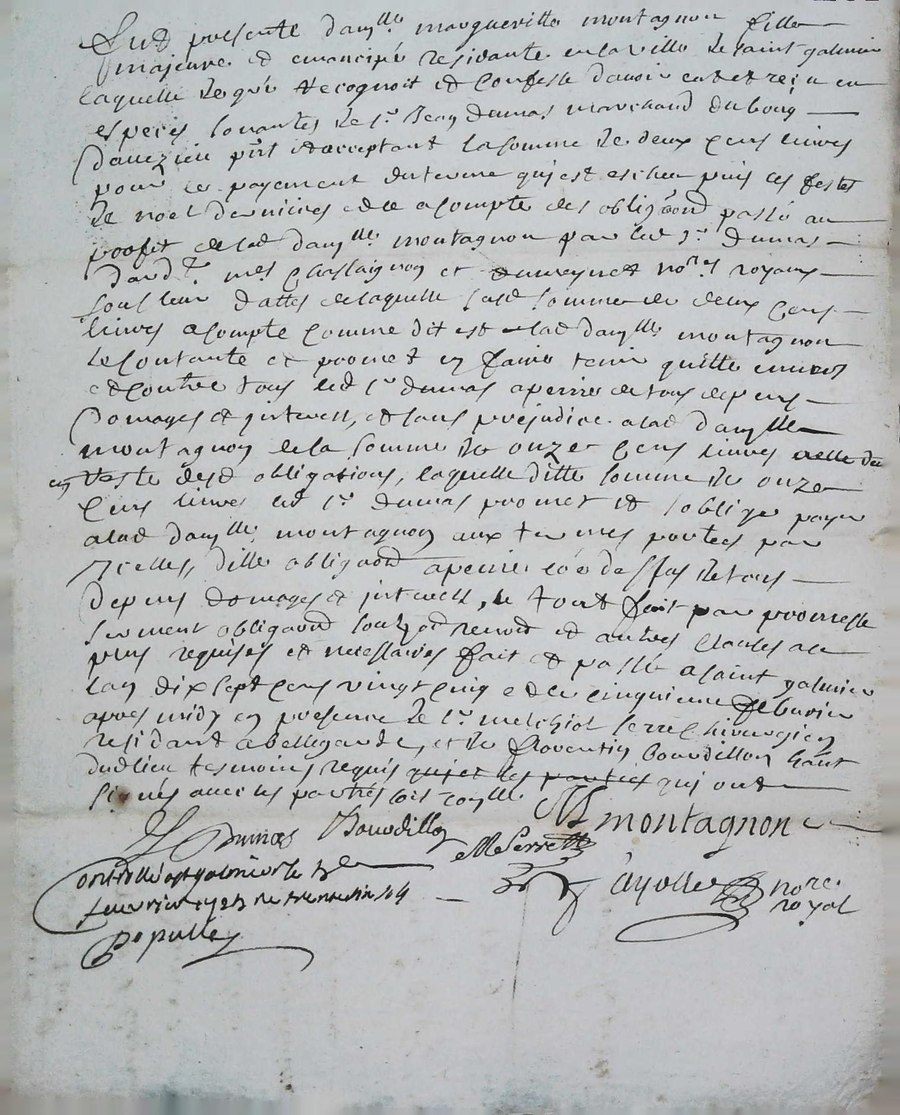 fut presente dam^lle margueritte montagnon fille
majeure et emancipée residante en la ville de saint galmier
laquelle de gré recognoit et confesse d'avoir eu et receu en
especes sonantes de s^r Jean dumas marchand du bourg
daveizieu p^nt et acceptant la somme de deux cens livres
pour le payement du terme qui est escheu puis les festes
de noel dernieres et de acompte des obliga^on passé au
proffit de lad dam^lle montagnon par led s^r dumas
pard^t m^es Chaslaignon et no^res royaux
sous leur dattes de laquelle susd somme de deux cens
livres acompte comme dit est lad dam^lle montagnon
se contante et promet en faire tenir quitte envers
et contre tous led s^r dumas a peine de tous depens
domages et interest, et sans prejudice a lad dam^lle
montagnon de la somme de onze cens livres
reste desd obligations, laquelle ditte somme de onze
cens livres led s^r dumas promet et s'oblige payer
a lad dam^lle montagnon aux termes portées par
icelles, dittes obliga^on a peine de tous
depens domages et interest, le tout fait par promesse
serment obliga^on et autres clauses a ce
plus requises et necessaires fait et passé a saint galmier
lan dix sept cens vingt cinq et le cinquieme febvrier
apres midy en presence de s^r melchiol serre chirurgien
residant a bellegarde, et de florentin Bourdillon
dud lieu tesmoins requis qui et les parties qui ont
signés avec les parties
J Dumas Bourdillon M montagnon
M Serre
Controllé a st galmier le
feuvrier 1725 no^re
royal